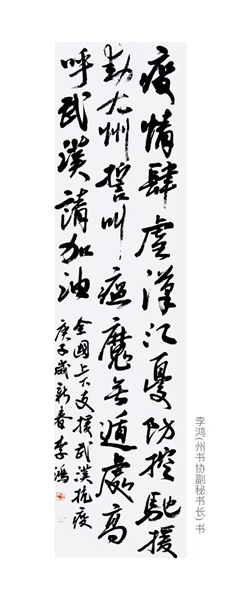 疫情肆虐漢江憂防控馳援
動九州誓叫瘟魔無遁處高
呼武漢請加油
全國上下支援武漢抗疫
庚子歲新春李鴻
李鸿(州书协副秘书长) 书